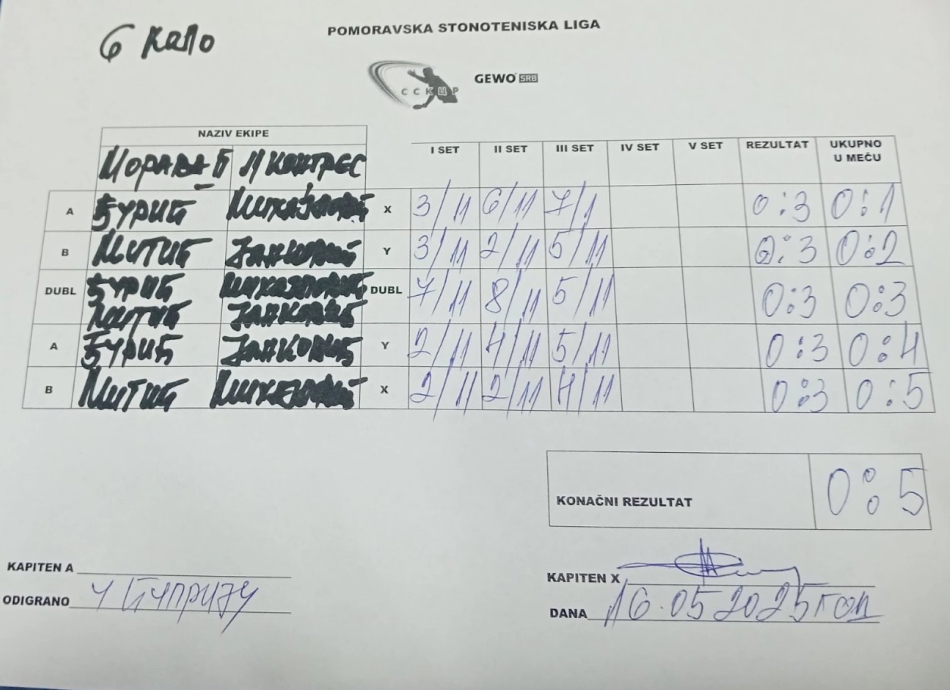 6 КОЛО
POMORAVSKA STONOTENISKA LIGA
ССКЦР GEWO SRB
NAZIV EKIPE I SET II SET III SET IV SET V SET REZULTAT UKUPNO U MEČU
МОРАВА
A ЂУРИЋ X 3/11 6/11 7/1 0:3 0:1
B МИТИЋ ЈАНКОВИЋ Y 3/11 2/11 5/11 0:3 0:2
DUBL ЂУРИЋ DUBL 7/11 8/11 5/11 0:3 0:3
МИТИЋ ЈАНКОВИЋ
A ЂУРИЋ ЈАНКОВИЋ Y 2/11 4/11 5/11 0:3 0:4
B МИТИЋ X 2/11 2/11 4/11 0:3 0:5
KONAČNI REZULTAT 0:5
KAPITEN A
KAPITEN X
ODIGRANO У ЋУПРИЈИ
DANA 16.05 2025 ГОД